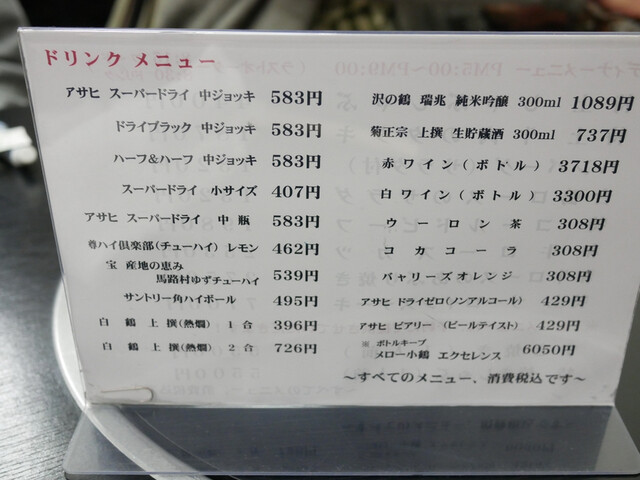 ドリンク メニュー
アサヒ スーパードライ 中ジョッキ 583円
ドライブラック 中ジョッキ 583円
ハーフ&ハーフ 中ジョッキ 583円
スーパードライ 小サイズ 407円
アサヒ スーパードライ 中 瓶 583円
樽ハイ倶楽部(チューハイ) レモン 462円
宝 産地の恵み
馬路村ゆずチューハイ 539円
サントリー角ハイボール 495円
白 鶴 上 撰(熱燗) 1 合 396円
白 鶴 上 撰(熱燗) 2 合 726円
沢の鶴 瑞兆 純米吟醸 300ml 1089円
菊正宗 上撰 生貯蔵酒 300ml 737円
赤 ワイン ( ボ ト ル ) 3718円
白 ワイン ( ボ ト ル ) 3300円
ウ ー ロ ン 茶 308円
コ カ コ ー ラ 308円
バャリーズ オレンジ 308円
アサヒ ドライゼロ(ノンアルコール) 429円
アサヒ ビアリー (ビールテイスト) 429円
※ ボトルキープ
メロー小鶴 エクセレンス 6050円
～すべてのメニュー、消費税込です～